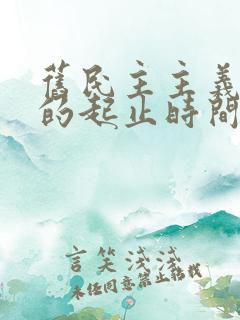 舊民主主義
的起止時間
言笑浅浅
未经同意禁止转载